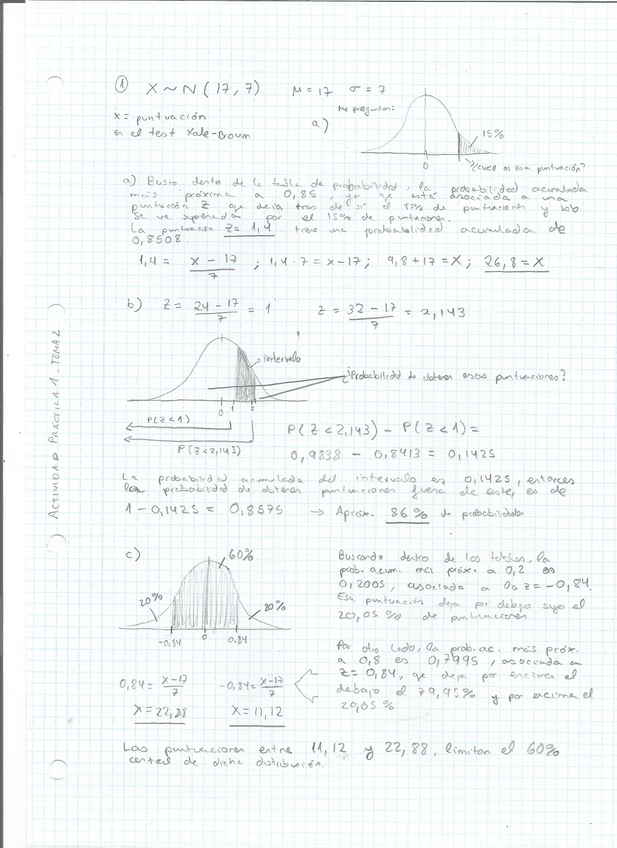 ① X ~ N (17, 7)   μ = 17   σ = 7
x = puntuación
en el test Yale-Brown
Me preguntan:
a)
15%
0
¿cuál es esa puntuación?
a) Busco dentro de la tabla de probabilidad, la probabilidad acumulada
más próxima a 0,85, ya que está asociada a una
puntuación Z que deja tras de sí el 85% de puntuaciones y solo
se ve superada por el 15% de puntuaciones.
La puntuación Z = 1,4 tiene una probabilidad acumulada de
0,8508.
1,4 = x - 17 / 7 ; 1,4 · 7 = x - 17 ; 9,8 + 17 = x ; 26,8 = x
b) Z = 24 - 17 / 7 = 1   Z = 32 - 17 / 7 = 2,143
intervalo
¿Probabilidad de obtener esas puntuaciones?
0 1 2
P(Z<1)
P(Z<2,143)
P(Z<2,143) - P(Z<1) =
0,9838 - 0,8413 = 0,1425
La probabilidad acumulada del intervalo es 0,1425, entonces
la probabilidad de obtener puntuaciones fuera de este, es de
1 - 0,1425 = 0,8575 → Aprox. 86% de probabilidades
c)
60%
20%
20%
-0,84 0 0,84
Buscando dentro de las tablas, la
prob. acum. más próx. a 0,2 es
0,2005, asociada a la z = -0,84.
Esa puntuación deja por debajo suyo el
20,05% de puntuaciones
Por otro lado, la prob. ac. más próx.
a 0,8 es 0,7995, asociada a
z = 0,84, que deja por
debajo el 79,95% y por encima el
20,05%
0,84 = x-17 / 7   -0,84 = x-17 / 7
x = 22,88   x = 11,12
Las puntuaciones entre 11,12 y 22,88, limitan el 60%
central de dicha distribución.
ACTIVIDAD PRÁCTICA 1 - TEMA 2